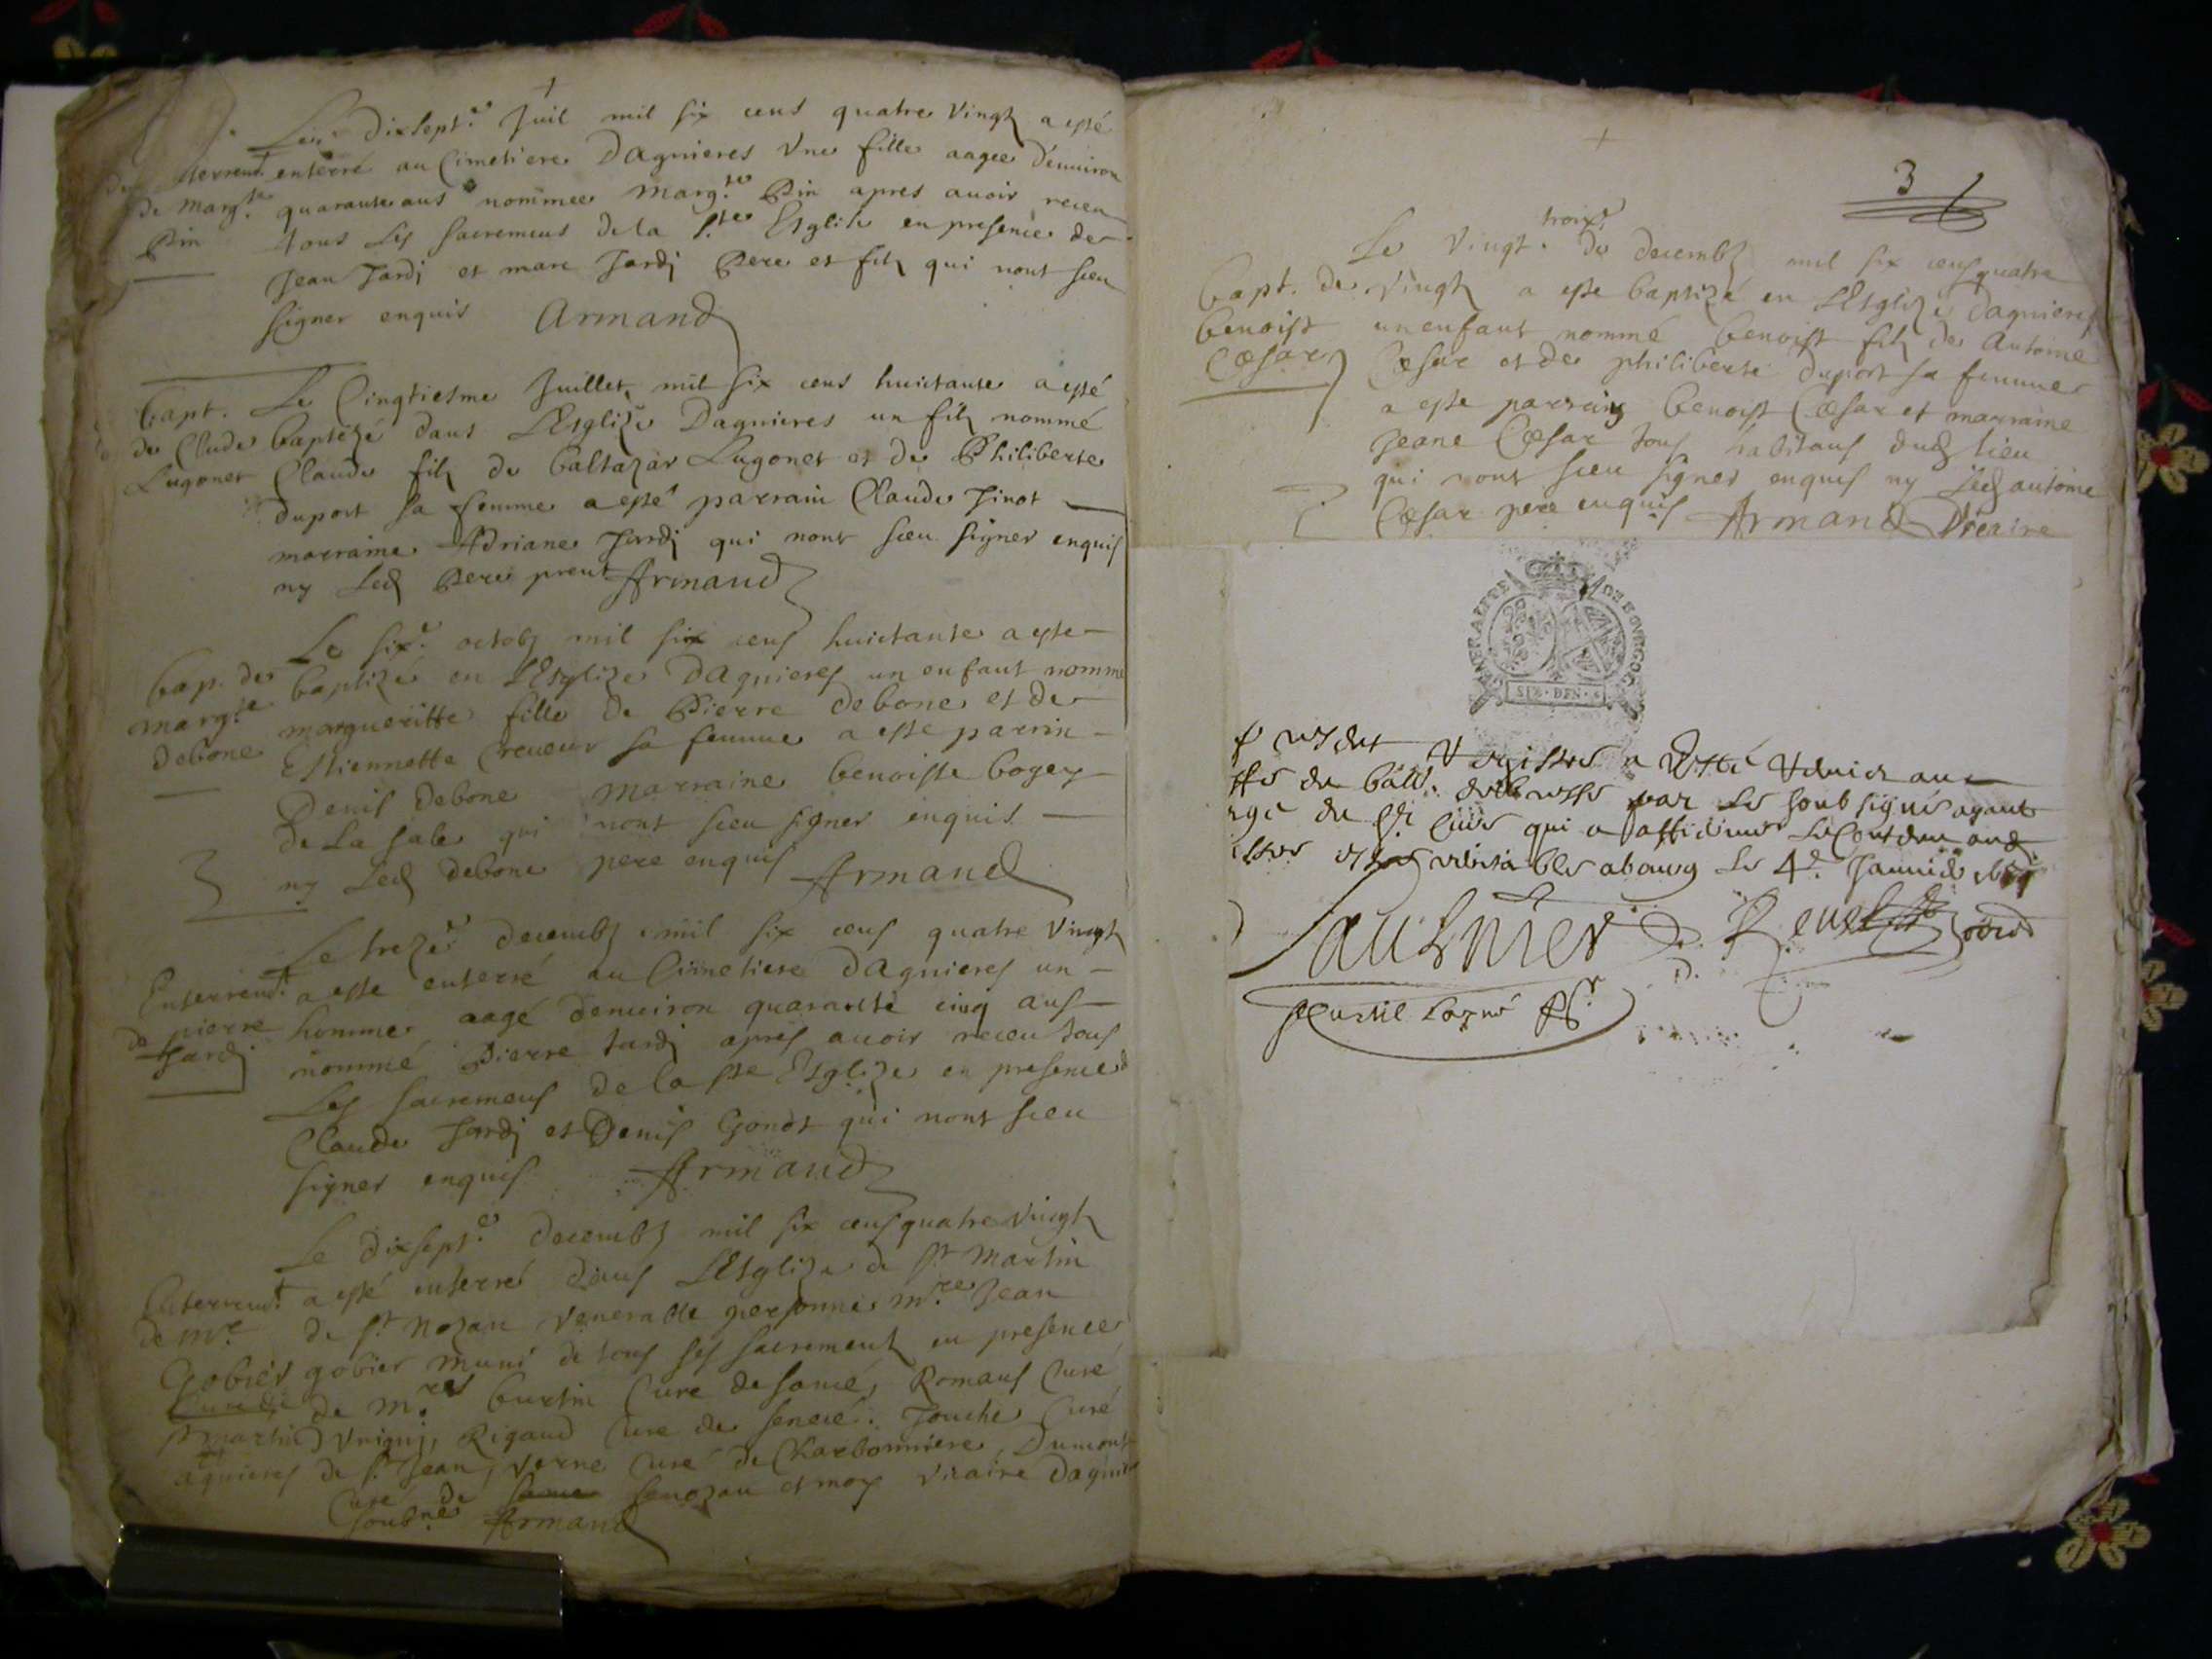 Le dixsept.e Juil mil six cens quatre vingt a esté
enterré au Cimetiere Dagnieres Une fille aagee denuiron
quarante ans nommee Marg.te Pin apres auoir receu
tous Les sacremens de la s.te Esglise en presence de
Jean Jardj et marc Jardj Pere et filz qui nont sceu
signer enquis Armand
de Marg.te
Pin
Le Vingtiesme Juillet mil six cens huictante a esté
baptizé dans LEsglize Dagnieres un filz nommé
Claude filz de baltazar Lugonet et de Philiberte
duport sa femme a esté parrain Claude Jinot
marraine Adriane Jardj qui nont sceu signer enquis
ny Led Pere preut Armand
bapt.
de Claude
Lugonet
Le six.e octob mil six cens huictante a este
baptizé en LEsglize Dagnieres un enfant nommé
margueritte fille de Pierre debone et de
Estiennette sa femme a esté parrin
Denis debone marraine benoiste bogey
de La sale qui nont sceu signer enquis
ny Led debone pere enquis Armand
bap. de
marg.te
debone
Le treze.e decemb mil six cens quatre vingt
a este enterré au Cimetiere dagnieres un
homme aagé denuiron quarante cinq ans
nommé Pierre Jardj apres auoir receu tous
Les sacremens de la ste Esglize en presence d
Claude Jardj et Denis Gondt qui nont sceu
signer enquis Armand
Enterremt
de pierre
Jardj
Le dixsept.e decemb mil six cens quatre vingt
a esté enterré dans LEsglize de st Martin
de st Nozan Venerable personne m.re Jean
gobier muni de tous ses sacrements en presence
de m.res burtin Curé de sancé, Romans Curé
Vrigny, Rigaud Curé de senecé. Jouche Curé
de s.t Jean, Verne Curé de Charbonniere, Dumont
Curé de senozan et moy vicaire Dagniere
soubne Armand
Enterremt
de m.re
Gobier
Curé de
st martin
agnieres
3
Le Vingt troix.e de decemb mil six cens quatre
Vingt a este baptizé en LEsglize dagnieres
un enfant nommé benoist filz de Antoine
Cæsar et de philiberte duport sa femme
a este parrain benoist Cæsar et marraine
Jeane Cæsar tous habitans dud lieu
qui nont sceu signer enquis ny Led antoine
Cæsar pere enquis Armand Vicaire
bapt. de
benoist
Cæsar
GENERALITE DE BOURGOG
SIX DEN
par Le soub signé ayant
qui a
a bourg Le 4.e Januier
Saulnier